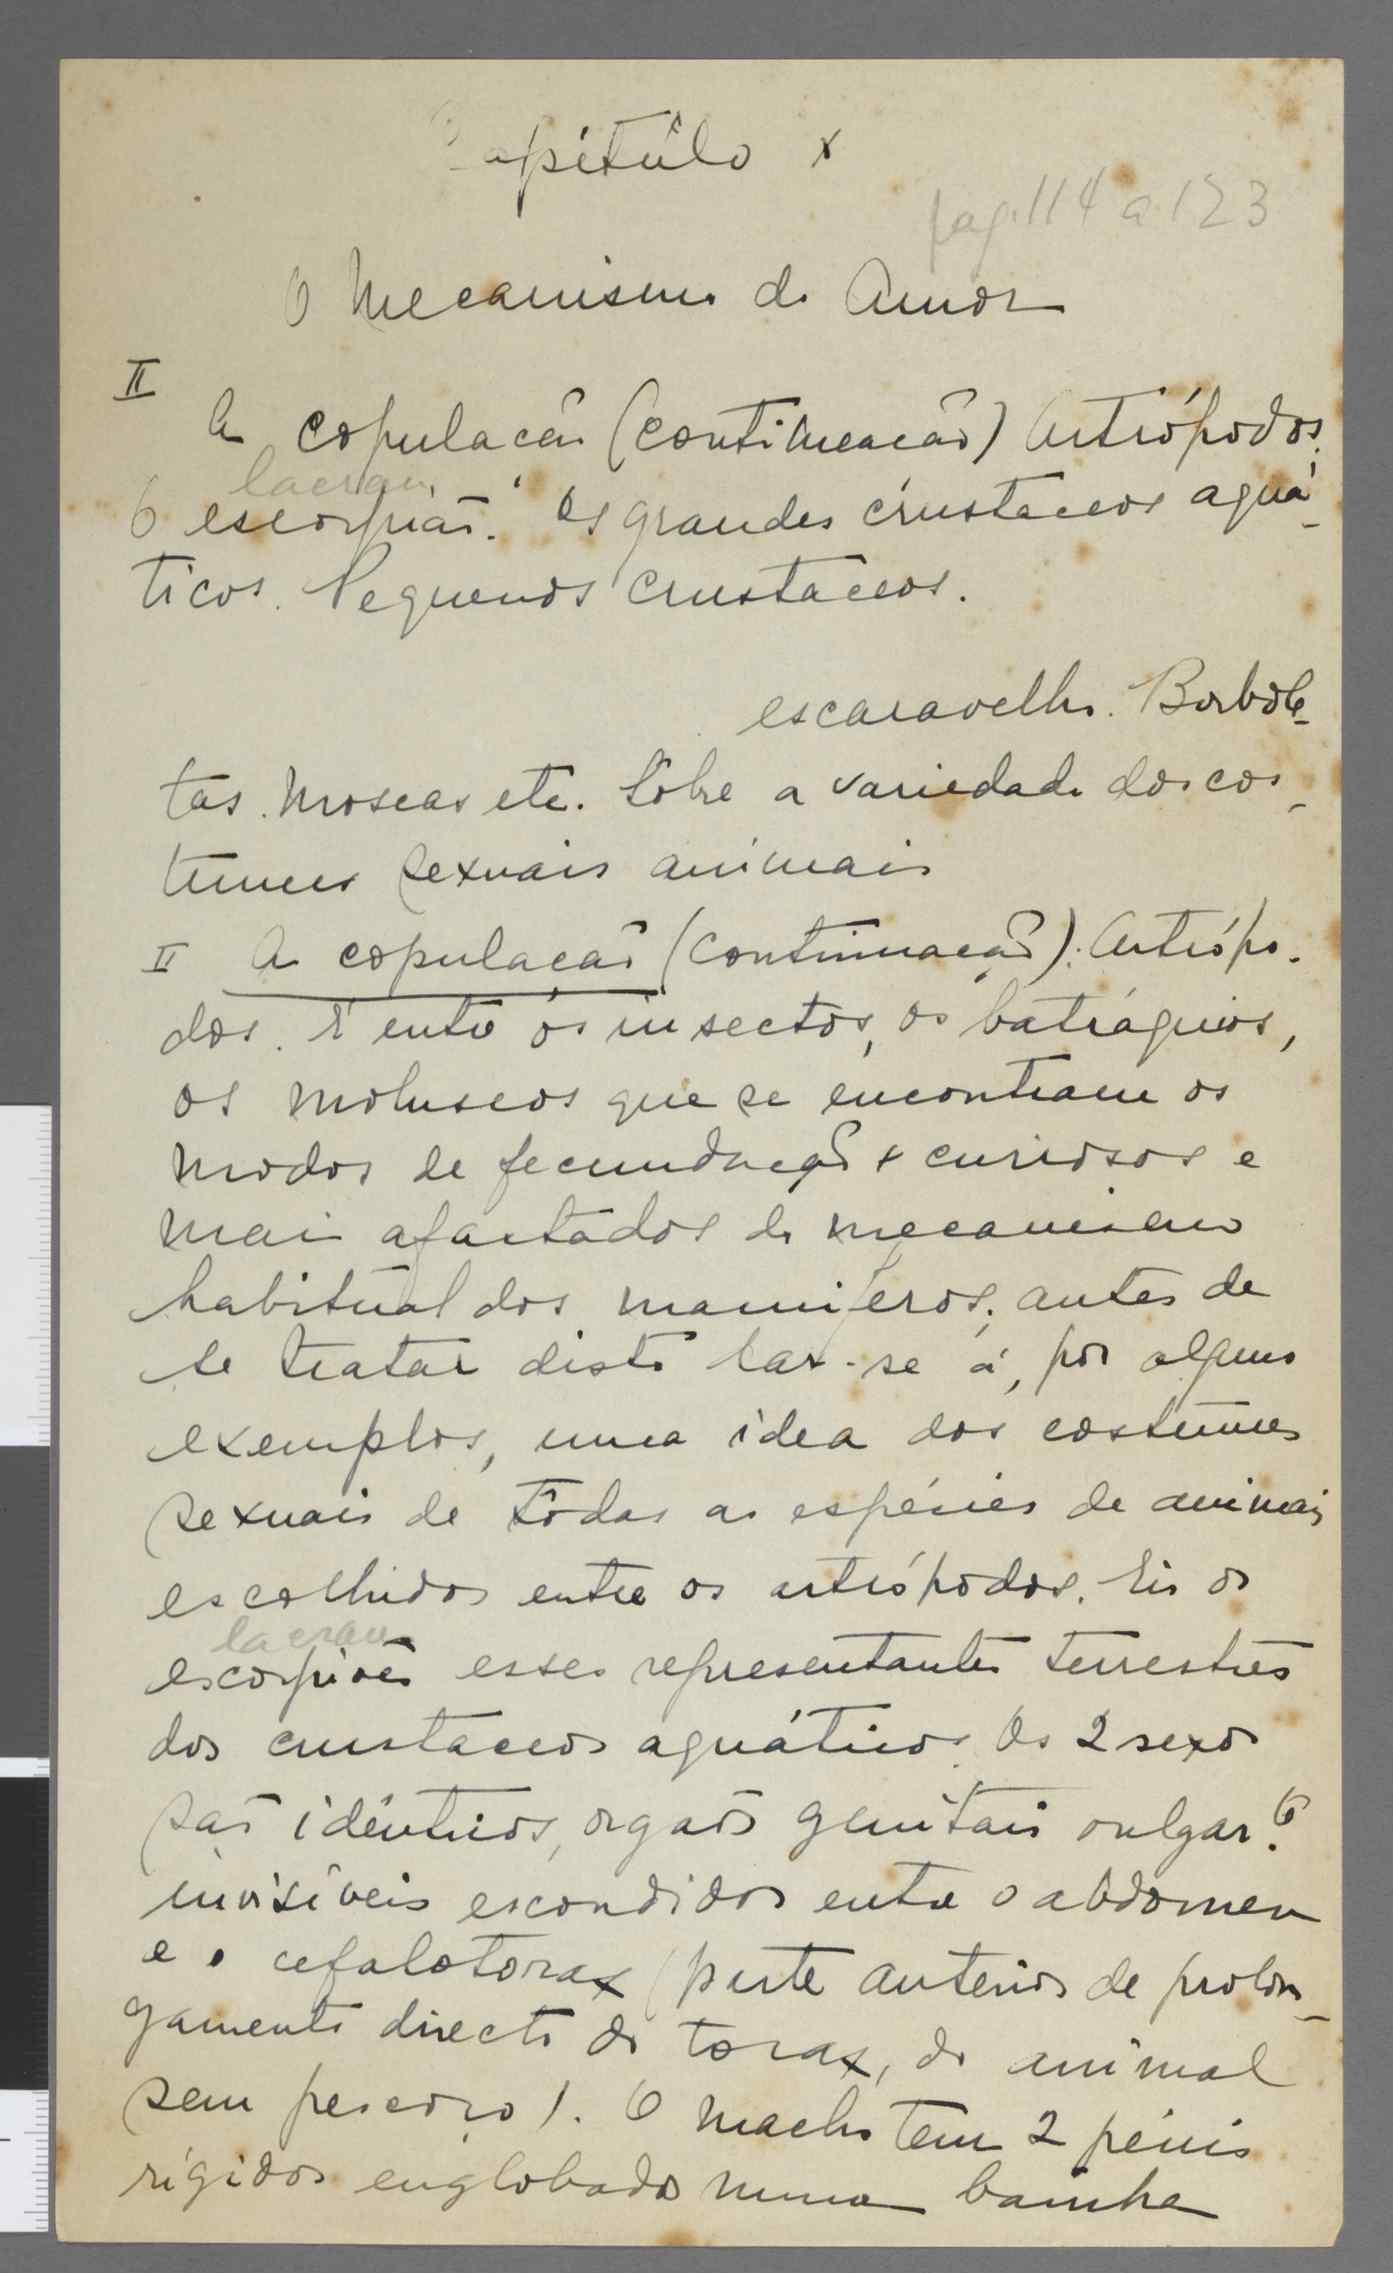 Capítulo X
pag. 114 a 123
O Mecanismo do Amor
II
A copulacão (continuacão) Artrópodos.
lacrau
O escorpião. Os grandes crustaceos aquá-
ticos. Pequenos crustáceos.
escaravelho. Borbole-
tas. Moscas etc. Sôbre a variedade dos cos-
tumes sexuais animais
II A copulacão (continuação). Artrópo-
dos. É entre os insectos, os batráquios,
os moluscos que se encontram os
modos de fecundação + curiosos e
mais afastados do mecanismo
habitual dos mamiferos; antes de
se tratar disto dar-se á, por alguns
exemplos, uma idea dos costumes
sexuais de tôdas as espécies de animais
escolhidos entre os artrópodos. Eis os
lacraus
escorpiões esses representantes terrestres
dos crustaceos aquáticos. Os 2 sexos
são idênticos, orgãos genitais vulgar.te
invisíveis escondidos entre o abdomen
e o cefalotorax (parte anterior de prolon-
gamento directo do torax, do animal
sem pescoço). O macho tem 2 pénis
rígidos englobados numa bainha